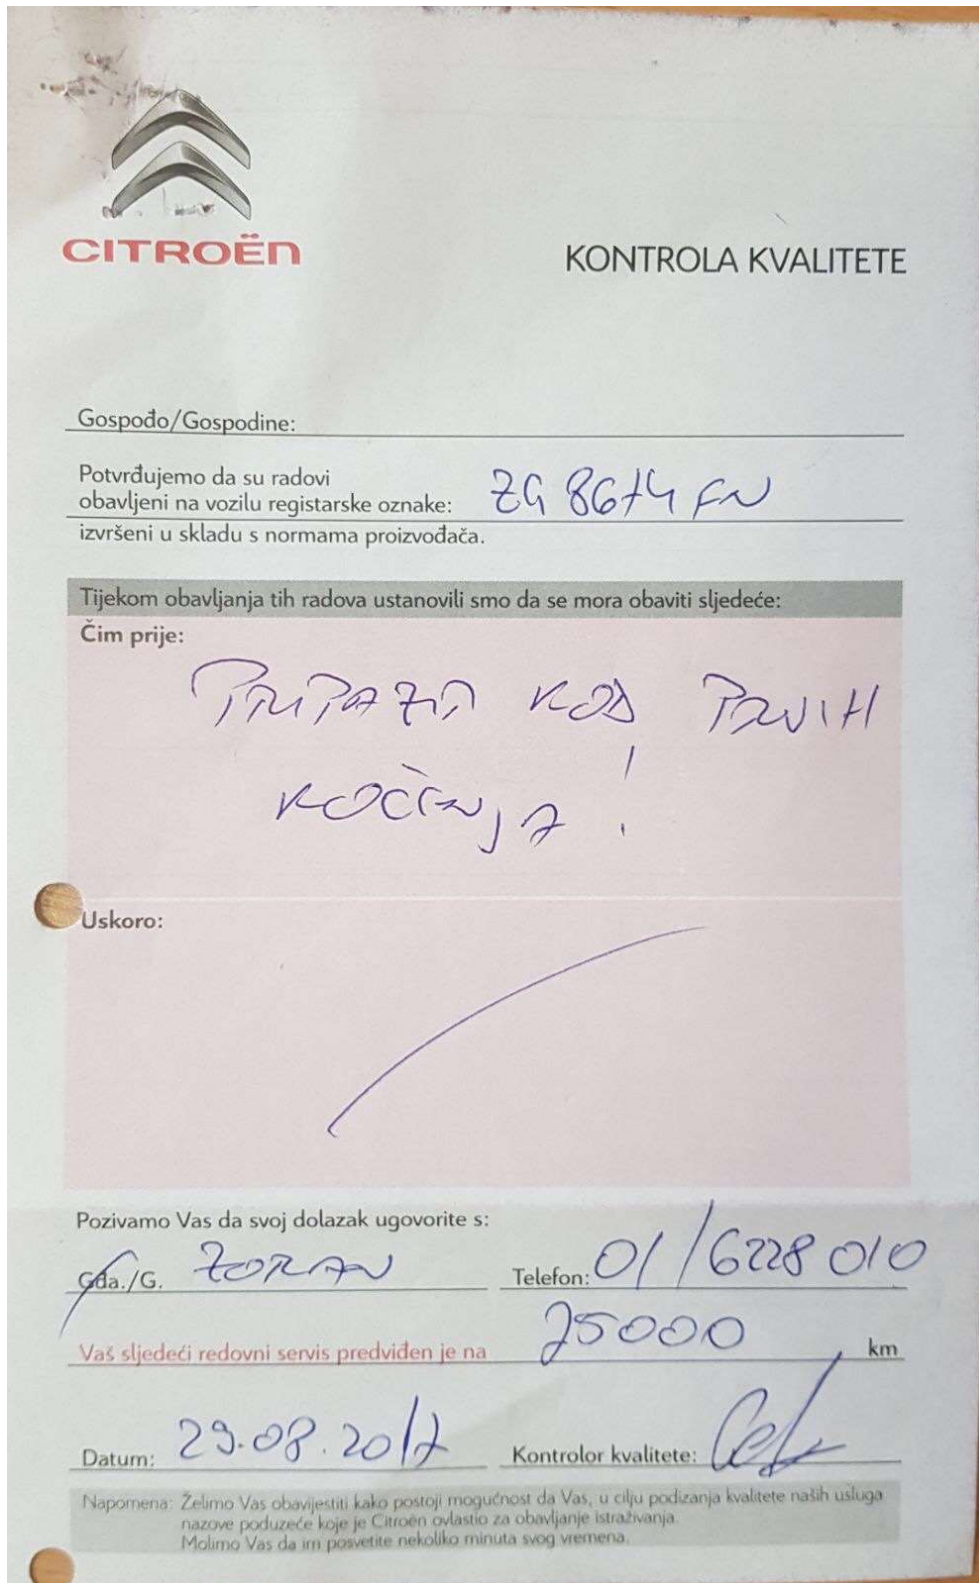 CITROËN
KONTROLA KVALITETE
Gospođo/Gospodine:
Potvrđujemo da su radovi
obavljeni na vozilu registarske oznake: ZG 8674 FN
izvršeni u skladu s normama proizvođača.
Tijekom obavljanja tih radova ustanovili smo da se mora obaviti sljedeće:
Čim prije:
PRIPAZIT KOD PRVIH
KOČENJA !
Uskoro:
Pozivamo Vas da svoj dolazak ugovorite s:
Gđa./G. ZORAN Telefon: 01/6228 010
Vaš sljedeći redovni servis predviđen je na 75000 km
Datum: 29.08.2017 Kontrolor kvalitete:
Napomena: Želimo Vas obavijestiti kako postoji mogućnost da Vas, u cilju podizanja kvalitete naših usluga
nazove poduzeće koje je Citroën ovlastio za obavljanje istraživanja.
Molimo Vas da im posvetite nekoliko minuta svog vremena.